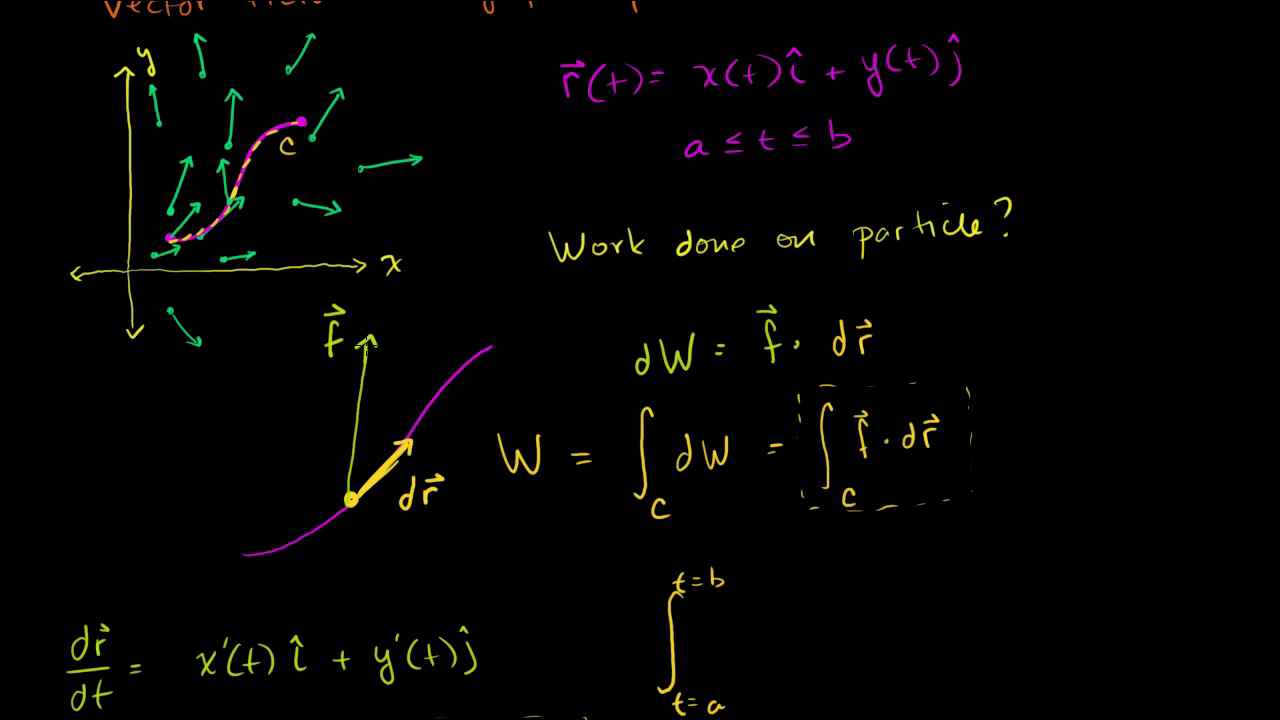 y
C
x
r⃗(t) = x(t)î + y(t)ĵ
a ≤ t ≤ b
Work done on particle?
f⃗
dr⃗
dW = f⃗ · dr⃗
W = ∫_C dW = ∫_C f⃗ · dr⃗
dr⃗/dt = x'(t) î + y'(t) ĵ
t = b
∫
t = a